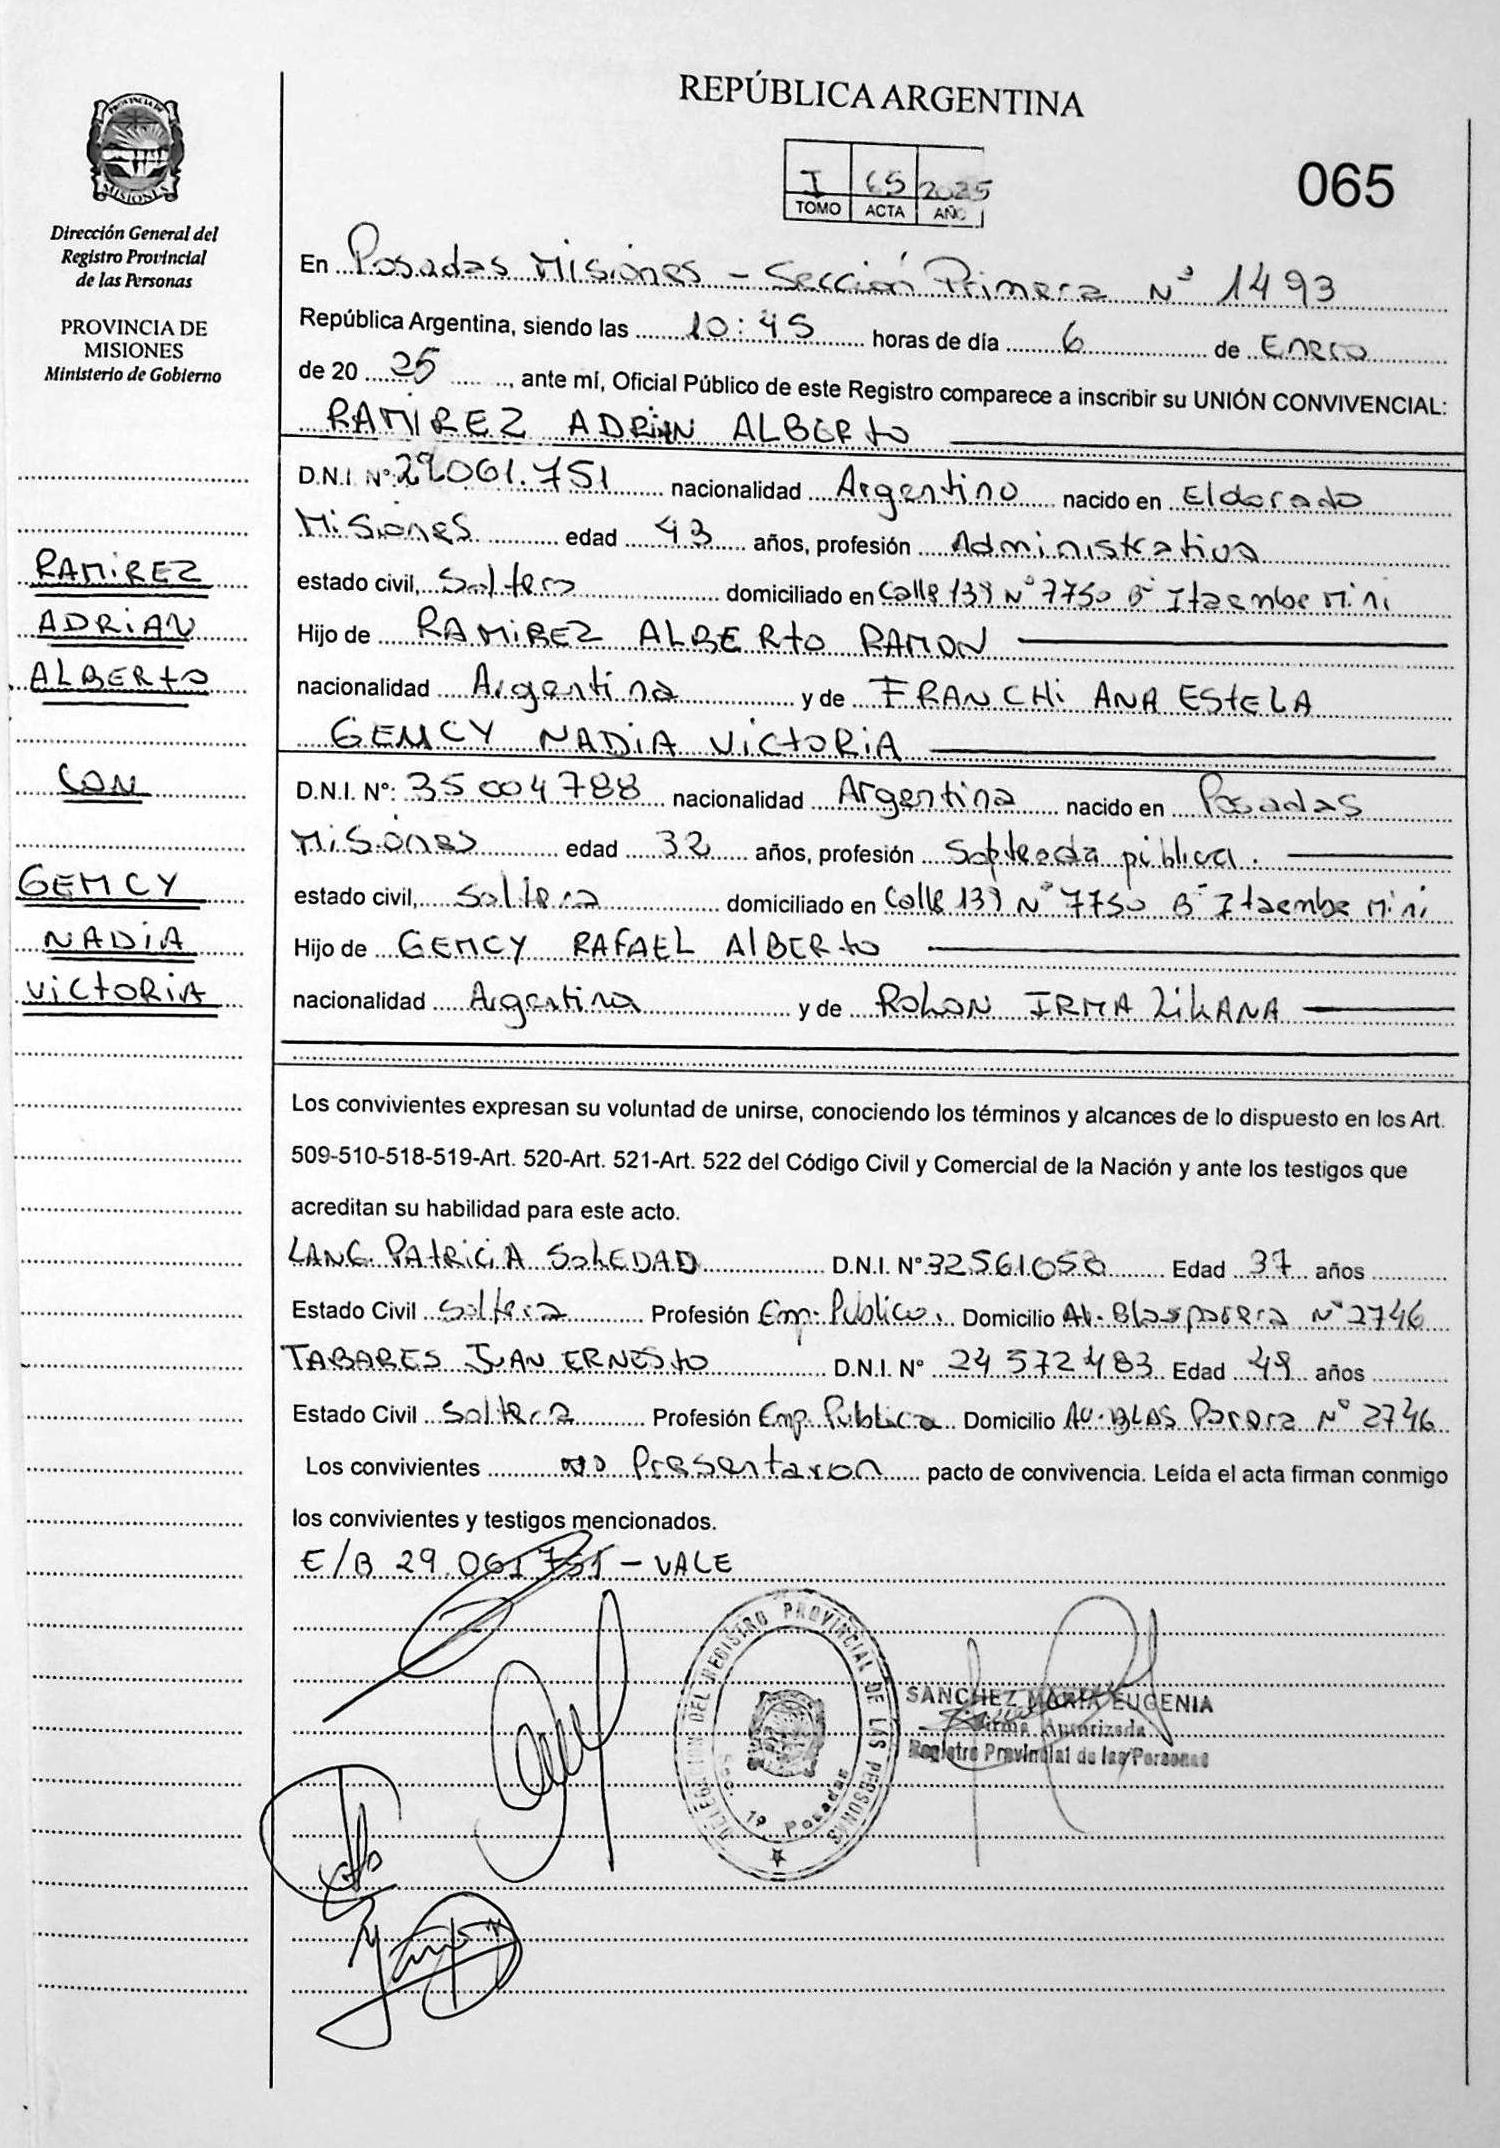 REPÚBLICA ARGENTINA
I 65 2025
TOMO ACTA AÑO
065
PROVINCIA DE
MISIONES
Dirección General del
Registro Provincial
de las Personas
PROVINCIA DE
MISIONES
Ministerio de Gobierno
RAMIREZ
ADRIAN
ALBERTO
CON
GEMCY
NADIA
VICTORIA
En Posadas Misiones - Sección Primera N° 1493
República Argentina, siendo las 10:45 horas de día 6 de Enero
de 20 25, ante mí, Oficial Público de este Registro comparece a inscribir su UNIÓN CONVIVENCIAL:
RAMIREZ ADRIAN ALBERTO
D.N.I. N° 29061.751 nacionalidad Argentino nacido en Eldorado
Misiones edad 43 años, profesión Administrativo
estado civil, Soltero domiciliado en Calle 139 N° 7750 B° Itaembe Mini
Hijo de RAMIREZ ALBERTO RAMON
nacionalidad Argentina y de FRANCHI ANA ESTELA
GEMCY NADIA VICTORIA
D.N.I. N°: 35004788 nacionalidad Argentina nacido en Posadas
Misiones edad 32 años, profesión pública.
estado civil, Soltera domiciliado en Calle 139 N° 7750 B° Itaembe Mini
Hijo de GEMCY RAFAEL ALBERTO
nacionalidad Argentina y de ROLON IRMA
Los convivientes expresan su voluntad de unirse, conociendo los términos y alcances de lo dispuesto en los Art.
509-510-518-519-Art. 520-Art. 521-Art. 522 del Código Civil y Comercial de la Nación y ante los testigos que
acreditan su habilidad para este acto.
LANG. PATRICIA SOLEDAD D.N.I. N° 32561058 Edad 37 años
Estado Civil Soltera Profesión Emp. Público. Domicilio Av. Blas parera N° 2746
TABARES JUAN ERNESTO D.N.I. N° 24 572 483 Edad 49 años
Estado Civil Soltera Profesión Emp. Publica Domicilio AV. BLAS Parera N° 2746
Los convivientes no Presentaron pacto de convivencia. Leída el acta firman conmigo
los convivientes y testigos mencionados.
E/B 29.061751 - VALE
DELEGACION DEL REGISTRO PROVINCIAL DE LAS PERSONAS
Sec. 1ª Posadas
SANCHEZ MARIA EUGENIA
Firma Autorizada
Registro Provincial de las Personas